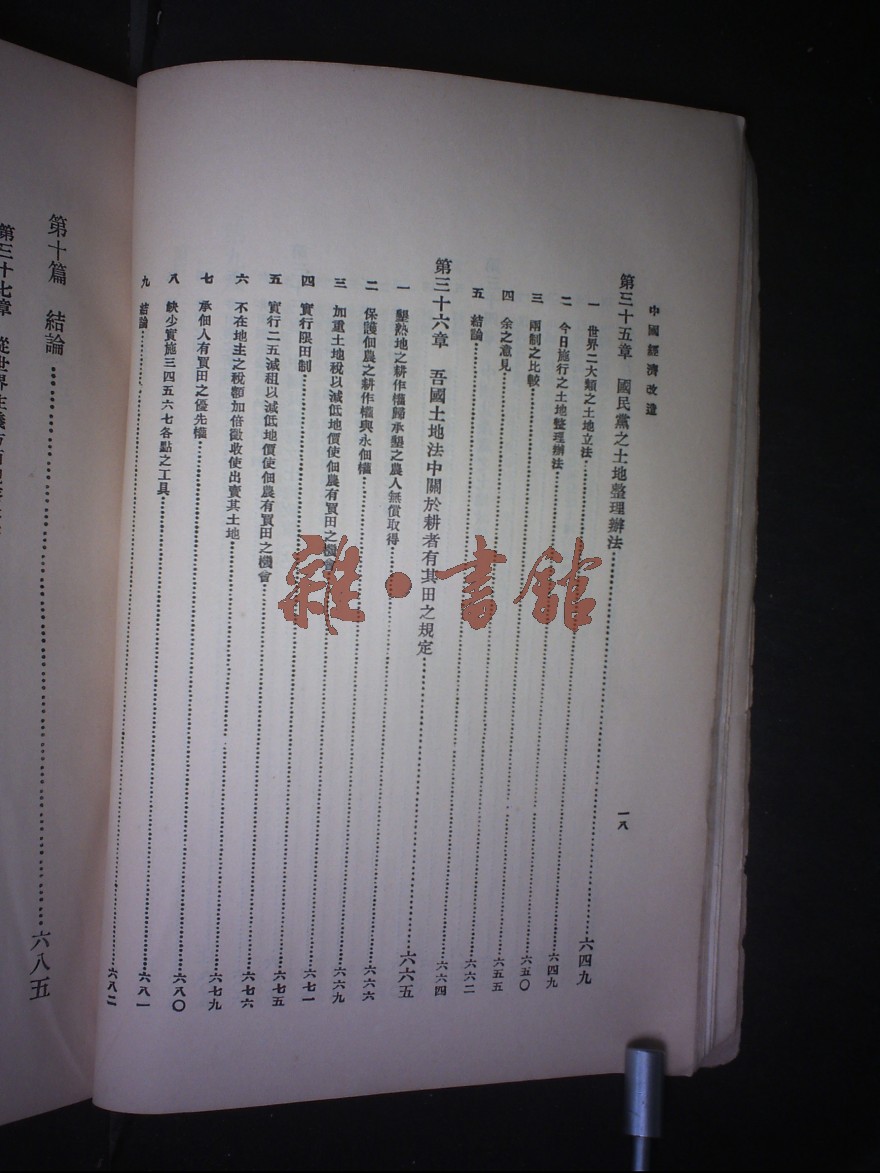 中國經濟改造
一八
第三十五章 國民黨之土地整理辦法……六四九
一 世界二大類之土地立法……六四九
二 今日施行之土地整理辦法……六五〇
三 兩制之比較……六五五
四 余之意見……六六二
五 結論……六六四
第三十六章 吾國土地法中關於耕者有其田之規定……六六五
一 墾熟地之耕作權歸承墾之農人無償取得……六六六
二 保護佃農之耕作權與永佃權……六六九
三 加重土地稅以減低地價使佃農有買田之機會……六七一
四 實行限田制……六七五
五 實行二五減租以減低地價使佃農有買田之機會……六七六
六 不在地主之稅額加倍徵收使出賣其土地……六七九
七 承佃人有買田之優先權……六八〇
八 缺少實施三四五六七各點之工具……六八一
九 結論……六八二
第十篇 結論……六八五
第三十七章 從世界主義方面
雜·書館